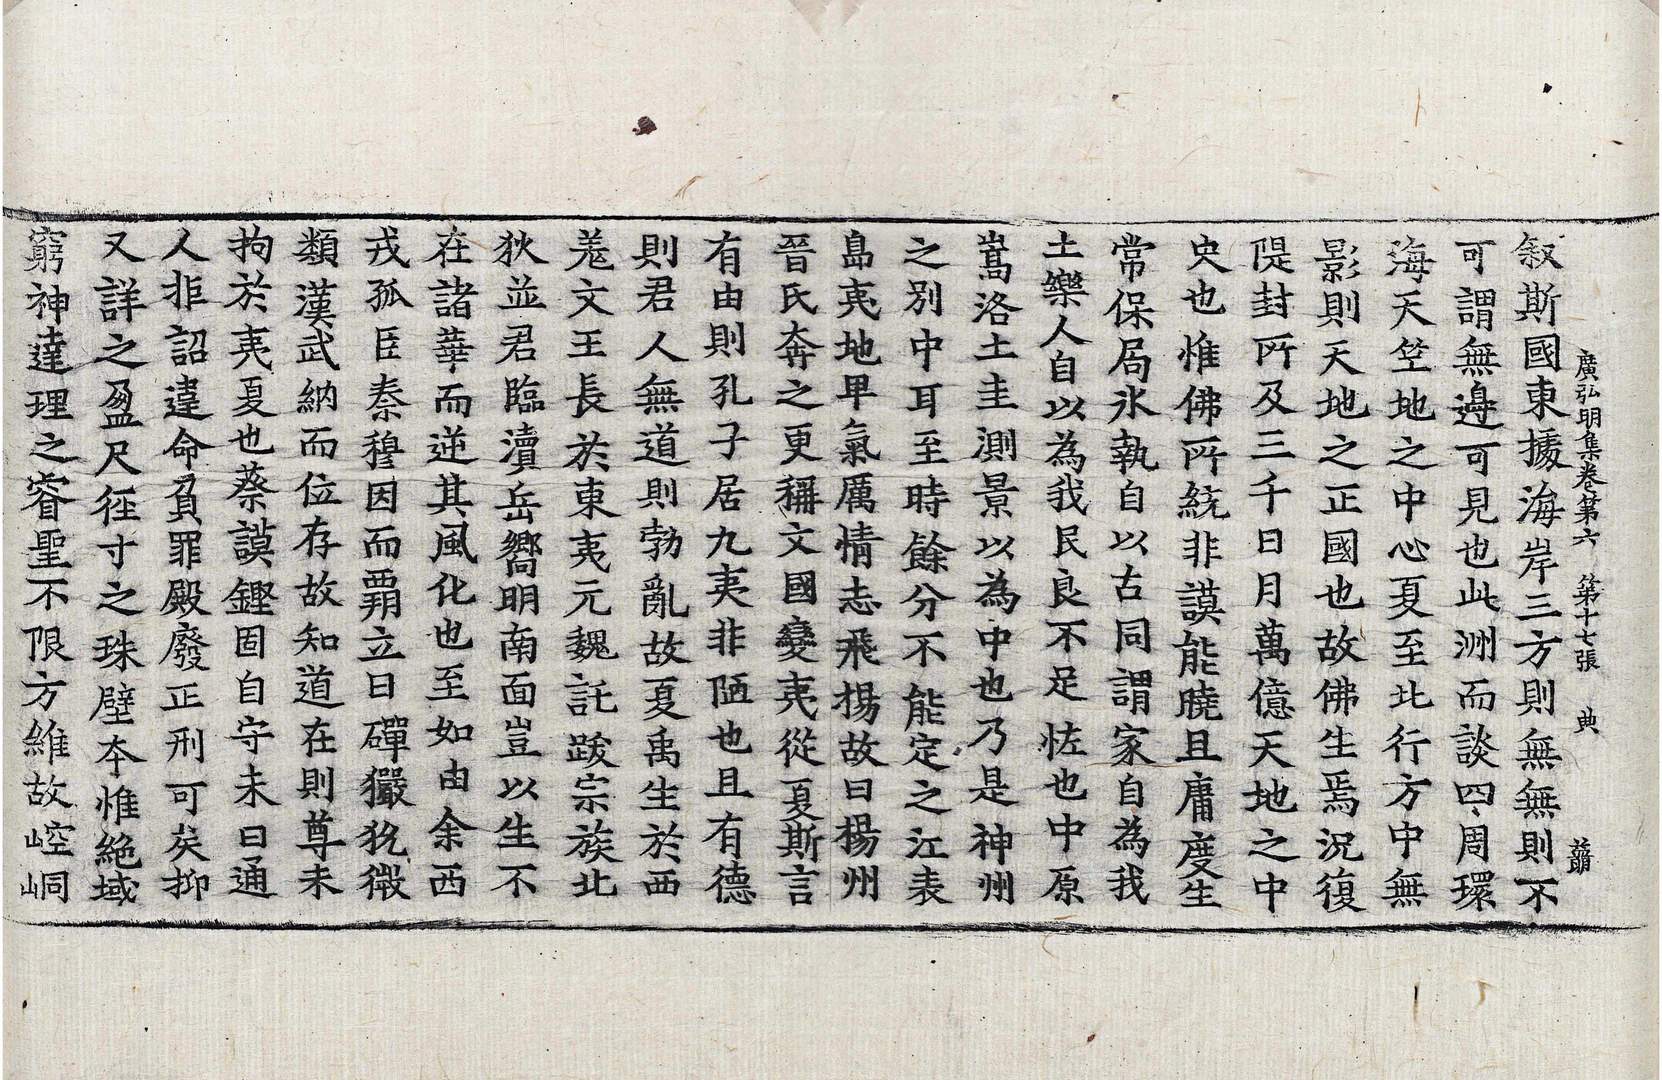 廣弘明集卷第六 第十七張 典
叙斯國東據海岸三方則無無則不
可謂無邊可見也此洲而談四周環
海天竺地之中心夏至北行方中無
影則天地之正國也故佛生焉況復
隄封所及三千日月萬億天地之中
央也惟佛所統非謨能曉且庸度生
常保局氷執自以古同謂家自為我
土樂人自以為我民良不足怪也中原
嵩洛土圭測景以為中也乃是神州
之別中耳至時餘分不能定之江表
島夷地卑氣厲情志飛揚故曰揚州
晉氏奔之更稱文國變夷從夏斯言
有由則孔子居九夷非陋也且有德
則君人無道則勃亂故夏禹生於西
羗文王長於東夷元魏託跋宗族北
狄並君臨瀆岳嚮明南面豈以生不
在諸華而逆其風化也至如由余西
戎孤臣秦穆因而覇立日磾玁狁微
類漢武納而位存故知道在則尊未
拘於夷夏也蔡謨鏗固自守未曰通
人非詔違命負罪殿廢正刑可矣抑
又詳之盈尺徑寸之珠璧本惟絕域
窮神達理之睿聖不限方維故崆峒